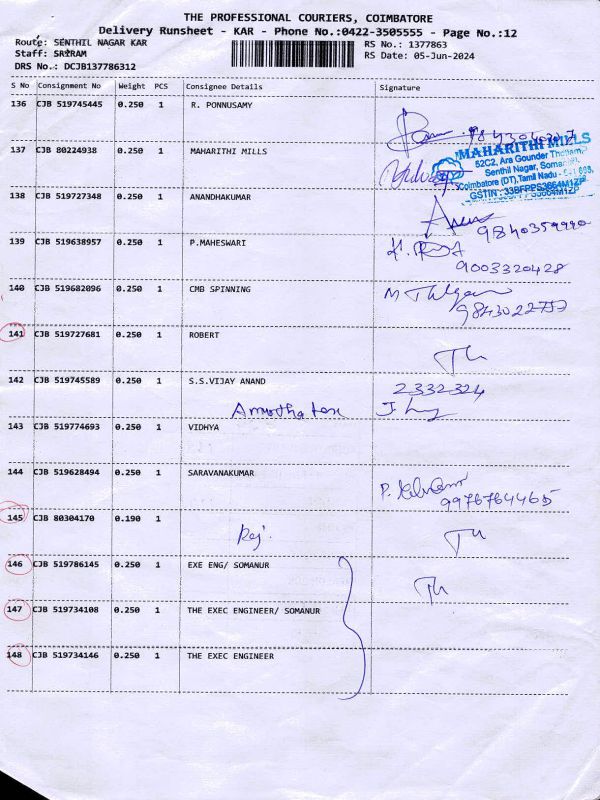 THE PROFESSIONAL COURIERS, COIMBATORE
Delivery Runsheet - KAR - Phone No.:0422-3505555 - Page No.:12
Route: SENTHIL NAGAR KAR
RS No.: 1377863
Staff: SRIRAM
RS Date: 05-Jun-2024
DRS No.: DCJB137786312
S No Consignment No Weight PCS Consignee Details Signature
136 CJB 519745445 0.250 1 R. PONNUSAMY
137 CJB 80224938 0.250 1 MAHARITHI MILLS
MAHARITHI MILLS
52C2, Ara Gounder
Senthil Nagar,
Coimbatore (DT), Tamil Nadu -
GSTIN :
138 CJB 519727348 0.250 1 ANANDHAKUMAR
139 CJB 519638957 0.250 1 P.MAHESWARI
9003320428
140 CJB 519682096 0.250 1 CMB SPINNING
141 CJB 519727681 0.250 1 ROBERT
142 CJB 519745589 0.250 1 S.S.VIJAY ANAND 2332324
143 CJB 519774693 0.250 1 VIDHYA
144 CJB 519628494 0.250 1 SARAVANAKUMAR
9976764465
145 CJB 80304170 0.190 1
146 CJB 519786145 0.250 1 EXE ENG/ SOMANUR
147 CJB 519734108 0.250 1 THE EXEC ENGINEER/ SOMANUR
148 CJB 519734146 0.250 1 THE EXEC ENGINEER